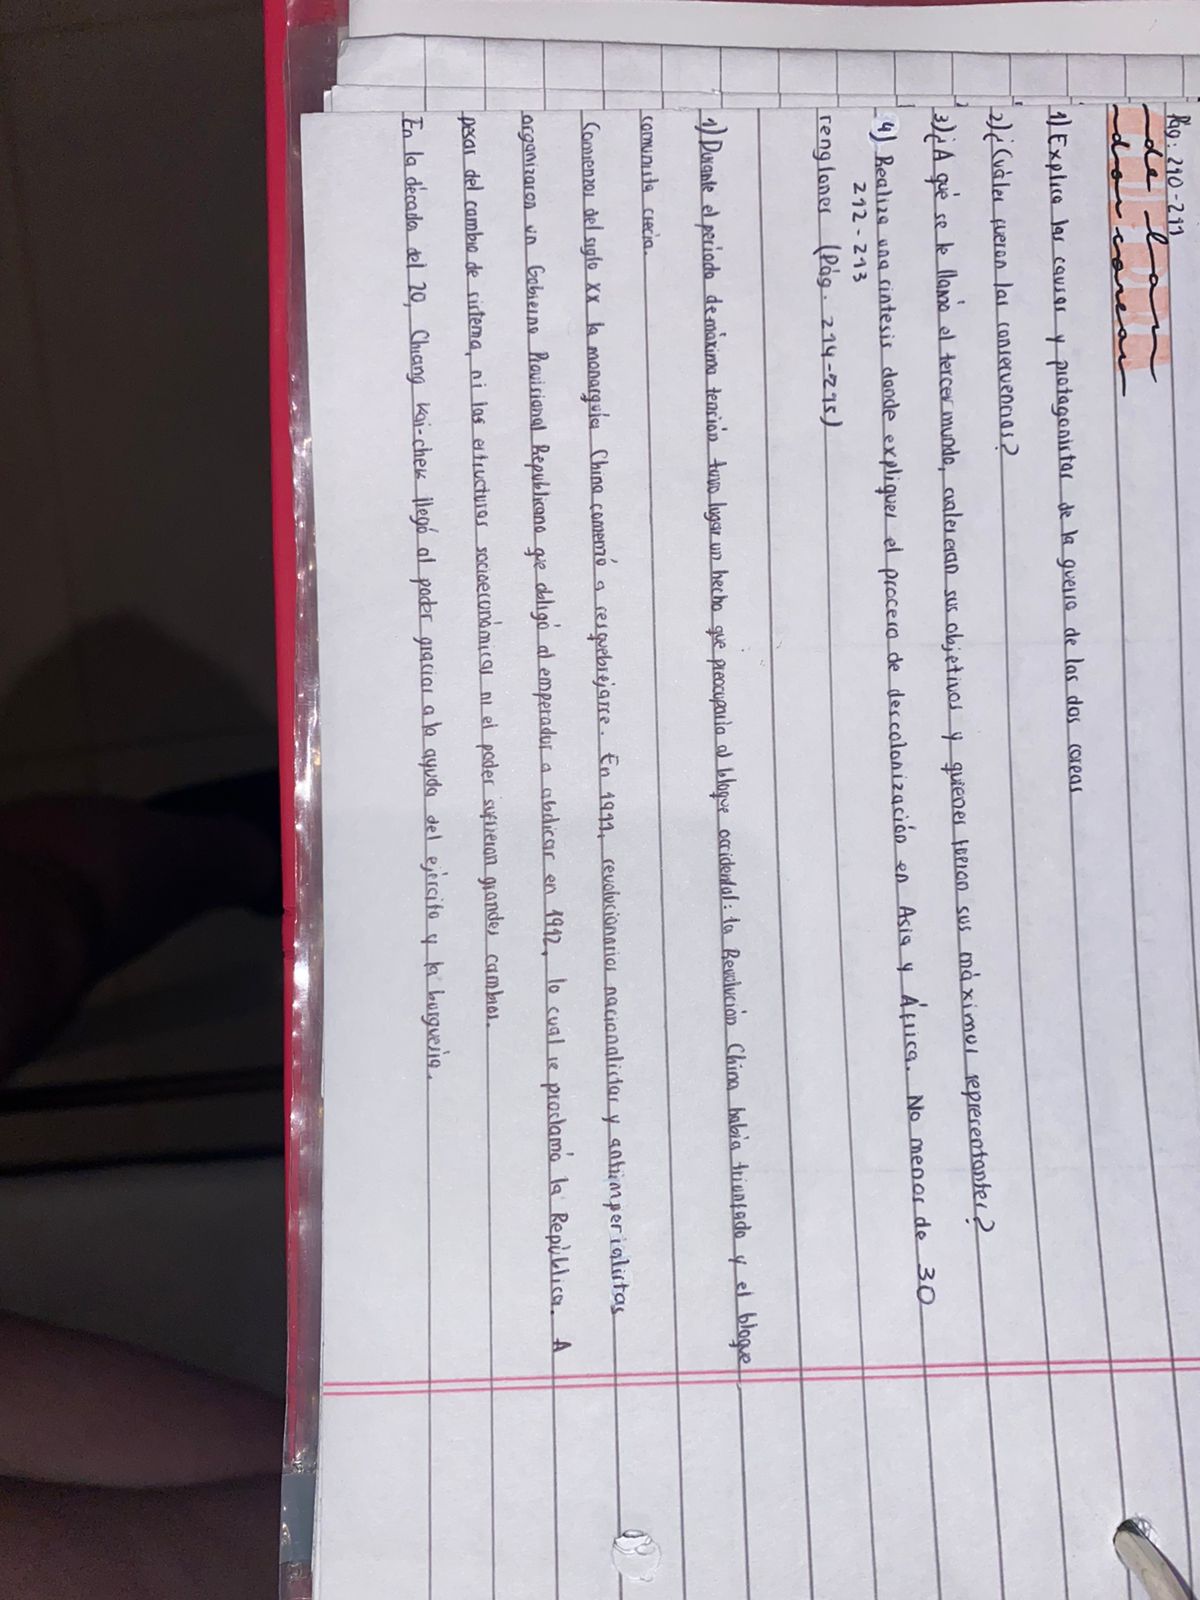 Pág: 210-211
GUERRA
de las
dos coreas
1) Explica las causas y protagonistas de la guerra de las dos coreas
2) ¿Cuáles fueron las consecuencias?
3) ¿A qué se le llamó el tercer mundo, cuales eran sus objetivos y quienes fueron sus máximos representantes?
4) Realiza una sintesis donde expliques el proceso de descolonización en Asia y África. No menos de 30
212-213
renglones (Pág. 214-215)
1) Durante el periodo de máxima tensión tuvo lugar un hecho que preocuparia al bloque occidental: la Revolución China habia triunfado y el bloque
comunista crecia.
Comienzos del siglo XX la monarquía China comenzó a resquebrejarse. En 1911, revolucionarios nacionalistas y antiimperialistas
organizaron un Gobierno Provisional Republicano que obligó al emperador a abdicar en 1912, lo cual se proclamó la República. A
pesar del cambio de sistema, ni las estructuras socioeconómicas ni el poder sufrieron grandes cambios.
En la década del 20, Chiang Kai-chek llegó al poder gracias a la ayuda del ejército y la burguesía.